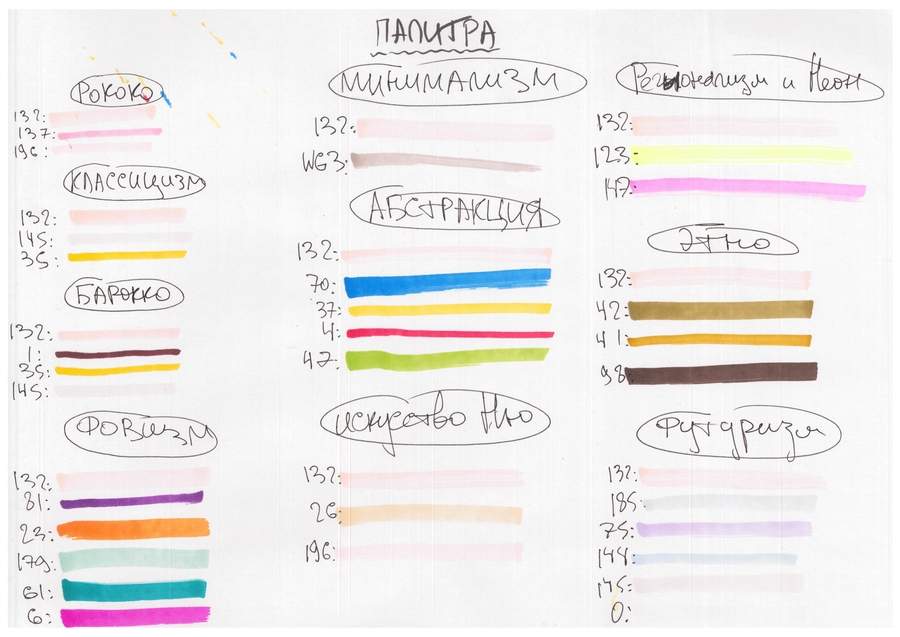 ПАЛИТРА
РОКОКО
132:
137:
196:
КЛАССИЦИЗМ
132:
145:
35:
БАРОККО
132:
1:
35:
145:
ФОВИЗМ
132:
81:
23:
179:
61:
6:
МИНИМАЛИЗМ
132:
WG3:
АБСТРАКЦИЯ
132:
70:
37:
4:
47:
искусство Ню
132:
26:
196:
Регионализм и Неон
132:
123:
147:
Этно
132:
42:
41:
98:
Футуризм
132:
185:
75:
144:
145:
0: